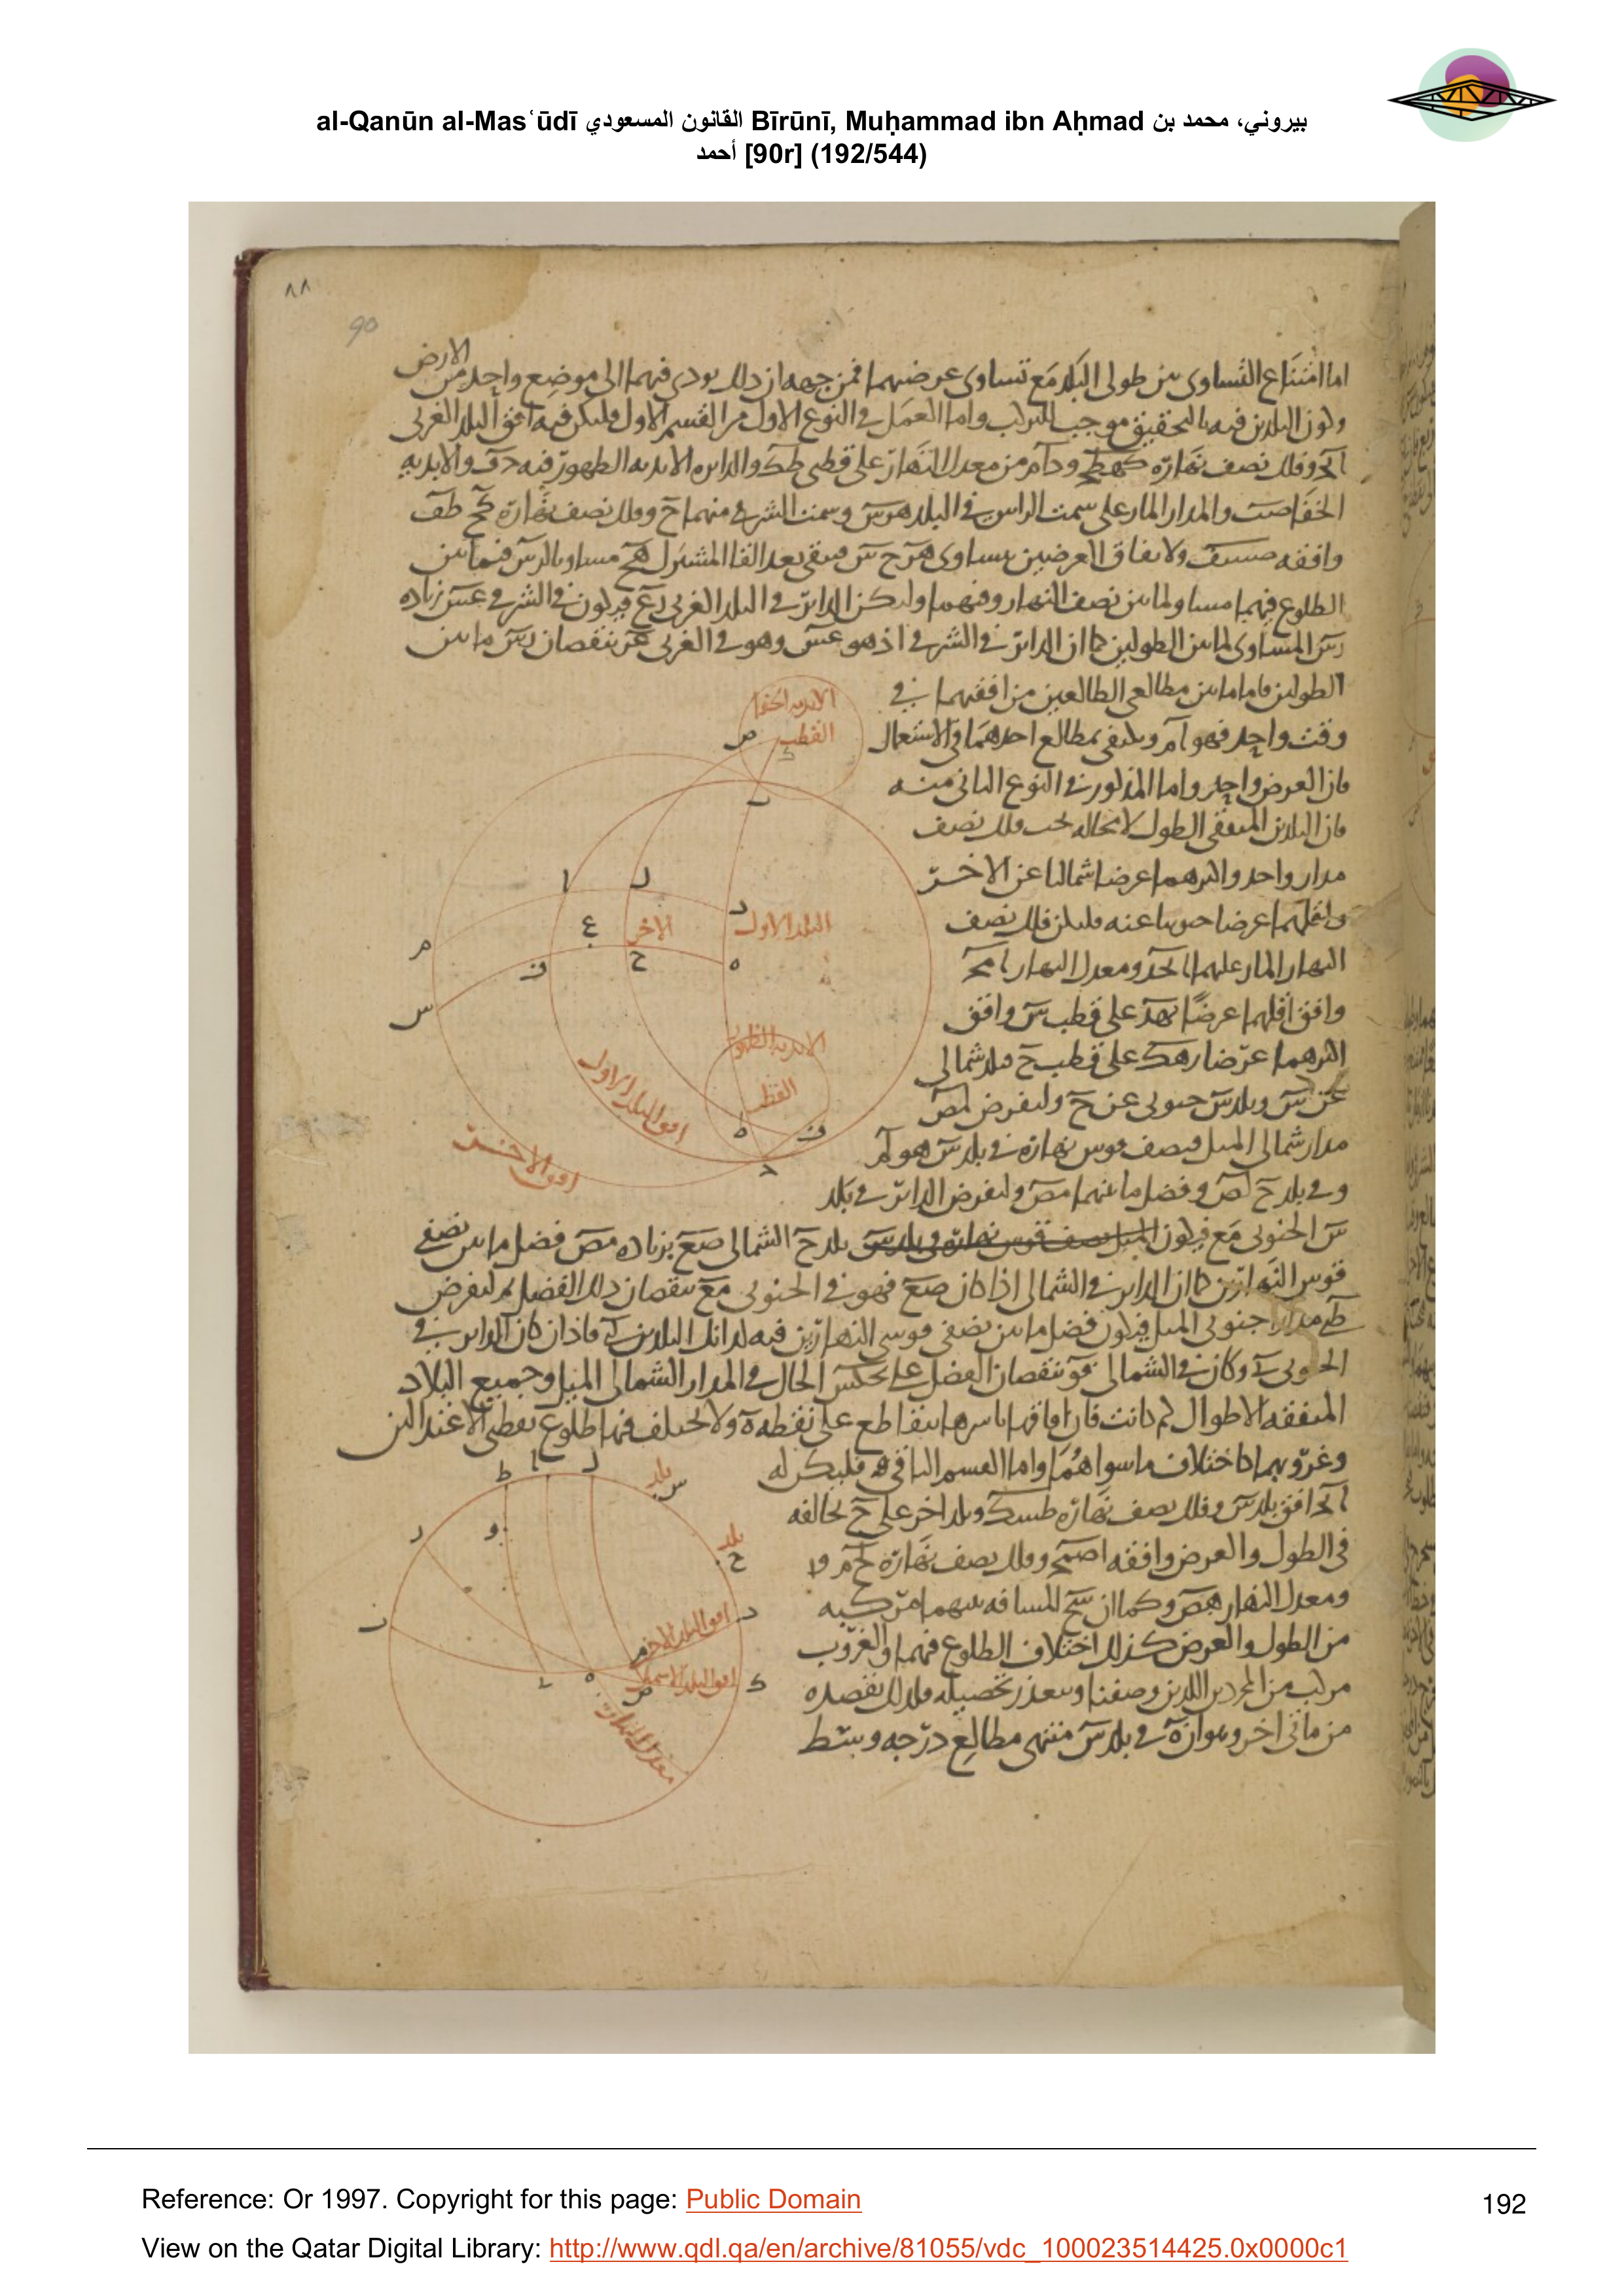 al-Qanūn al-Mas‘ūdī القانون المسعودي Bīrūnī, Muḥammad ibn Aḥmad بيروني، محمد بن
أحمد [90r] (192/544)
٨٨
90
الارض
اما امتناع التساوى بين طولى البلد مع تساوى عرضيهما فمن جهه ان ذلك يودى فيهما الى موضع واحد من
وكون البلدين فيه بالتحقيق موجب للتركيب واما العمل فى النوع الاول من القسم الاول فليكن فيه افق البلد الغربى
وفلك نصف نهاره كهطح ود آم من معدل النهار على قطبى طك والدايره الابديه الظهور فيه دف والابديه
الخفا صت والمدار المار على سمت الراس فى البلد هوس وسمت الشرقى منهما ح وفلك نصف نهاره كح طف
وافقه ولاتفاق العرضين يساوى هز ح س فيبقى بعد القا المشترك هح مساويا لزس فيما بين
الطلوع فيهما مساو لما بين نصف النهار وفيهما وليكن الداير فى البلد الغربى زع فيكون فى الشرقى عس زياده
زس المساوى لما بين الطولين كما ان الداير فى الشرقى اذ هو عس وهو فى الغربى عز بنقصان زس ما بين
الطولين فاما ما بين مطالعى الطالعين من افقيهما فى
وقت واحد فهو آم ويكتفى بمطالع احدهما فى الاستعمال
فان العرض واحد واما المذكور فى النوع الثانى منه
فان البلدين المتفقى الطول لا محاله تحت فلك نصف
مدار واحد واكثرهما عرضا شماليا عن الاخر
واقلهما عرضا جنوبيا عنه فليكن فلك نصف
النهار المار عليهما ابحد ومعدل النهار
وافق اقلهما عرضًا بهد على قطب س وافق
اكثرهما عرضا زهك على قطب ح فبلد شمالى
عن س وبلد س جنوبى عن ح ولنفرض لمص
مدار شمالى الميل فنصف قوس نهاره فى بلد س هو لم
وفى بلد ح لص وفضل ما بينهما مص ولنفرض الداير فى بلد
س الجنوبى مع فيكون بلد ح الشمالى صع بزياده مص فضل ما بين نصفى
قوس النهارين كما ان الداير فى الشمالى اذا كان صع فهو فى الجنوبى مع بنقصان ذلك الفضل ثم لنفرض
مدارا جنوبى الميل فيكون فضل ما بين نصفى قوسى النهارين فيه لذانك البلدين فاذا كان الداير فى
الجنوبى وكان فى الشمالى بنقصان الفضل على عكس الحال فى المدار الشمالى الميل وجميع البلاد
المتفقه الاطوال كم كانت فان افاقها باسرها يتقاطع على نقطه ه ولا يختلف فيها طلوع نقطتى الاعتدالين
وغروبهما كاختلاف ما سواهما واما القسم الباقى فليكن له
افق بلد س وفلك نصف نهاره طسك وبلد اخر على ح يخالفه
فى الطول والعرض وافقه وفلك نصف نهاره
ومعدل النهار هص وكما ان سح المسافه بينهما مركبه
من الطول والعرض كذلك اختلاف الطلوع فيهما والغروب
مركب من المجردين اللذين وصفنا ويتعذر تحصيله فلذلك نقصده
من ماتى اخر وهو ان ه فى بلد س منتهى مطالع درجه وسط
الابديه الخفا
القطب
ص
ك
ب
ا
ل
د
ع
الاخر
البلد الاول
م
ف
ح
ه
س
الابديه الظهور
القطب
افق البلد الاول
افق الاخر
ه
ف
ح
ط
ا
ل
بلد
س
بلد
ح
ز
و
ب
د
افق البلد الاخر
م
ه
ص
ك
معدل النهار
Reference: Or 1997. Copyright for this page: Public Domain
192
View on the Qatar Digital Library: http://www.qdl.qa/en/archive/81055/vdc_100023514425.0x0000c1